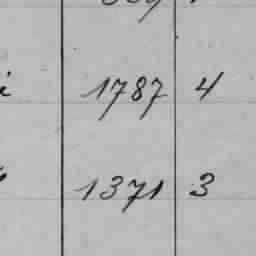 1787 4
1371 3